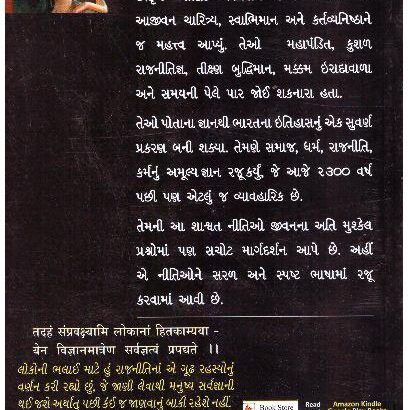 આજીવન ચારિત્ર્ય, સ્વાભિમાન અને કર્તવ્યનિષ્ઠાને
જ મહત્ત્વ આપ્યું. તેઓ મહાપંડિત, કુશળ
રાજનીતિજ્ઞ, તીક્ષ્ણ બુદ્ધિમાન, મક્કમ ઇરાદાવાળા
અને સમયની પેલે પાર જોઈ શકનારા હતા.
તેઓ પોતાના જ્ઞાનથી ભારતના ઇતિહાસનું એક સુવર્ણ
પ્રકરણ બની શક્યા. તેમણે સમાજ, ધર્મ, રાજનીતિ,
કર્મનું અમૂલ્ય જ્ઞાન રજૂ કર્યું, જે આજે ૨૩૦૦ વર્ષ
પછી પણ એટલું જ વ્યાવહારિક છે.
તેમની આ શાશ્વત નીતિઓ જીવનના અતિ મુશ્કેલ
પ્રશ્નોમાં પણ સચોટ માર્ગદર્શન આપે છે. અહીં
એ નીતિઓને સરળ અને સ્પષ્ટ ભાષામાં રજૂ
કરવામાં આવી છે.
તદહં સંપ્રવક્ષ્યામિ લોકાનાં હિતકામ્યયા -
યેન વિજ્ઞાનમાત્રેણ સર્વજ્ઞત્વં પ્રપદ્યતે ।।
લોકોની ભલાઈ માટે હું રાજનીતિનાં એ ગૂઢ રહસ્યોનું
વર્ણન કરી રહ્યો છું, જે જાણી લેવાથી મનુષ્ય સર્વજ્ઞાની
થઈ જશે અર્થાત્ પછી કંઈ જ જાણવાનું બાકી રહેશે નહીં.
Book Store
Read
Amazon Kindle